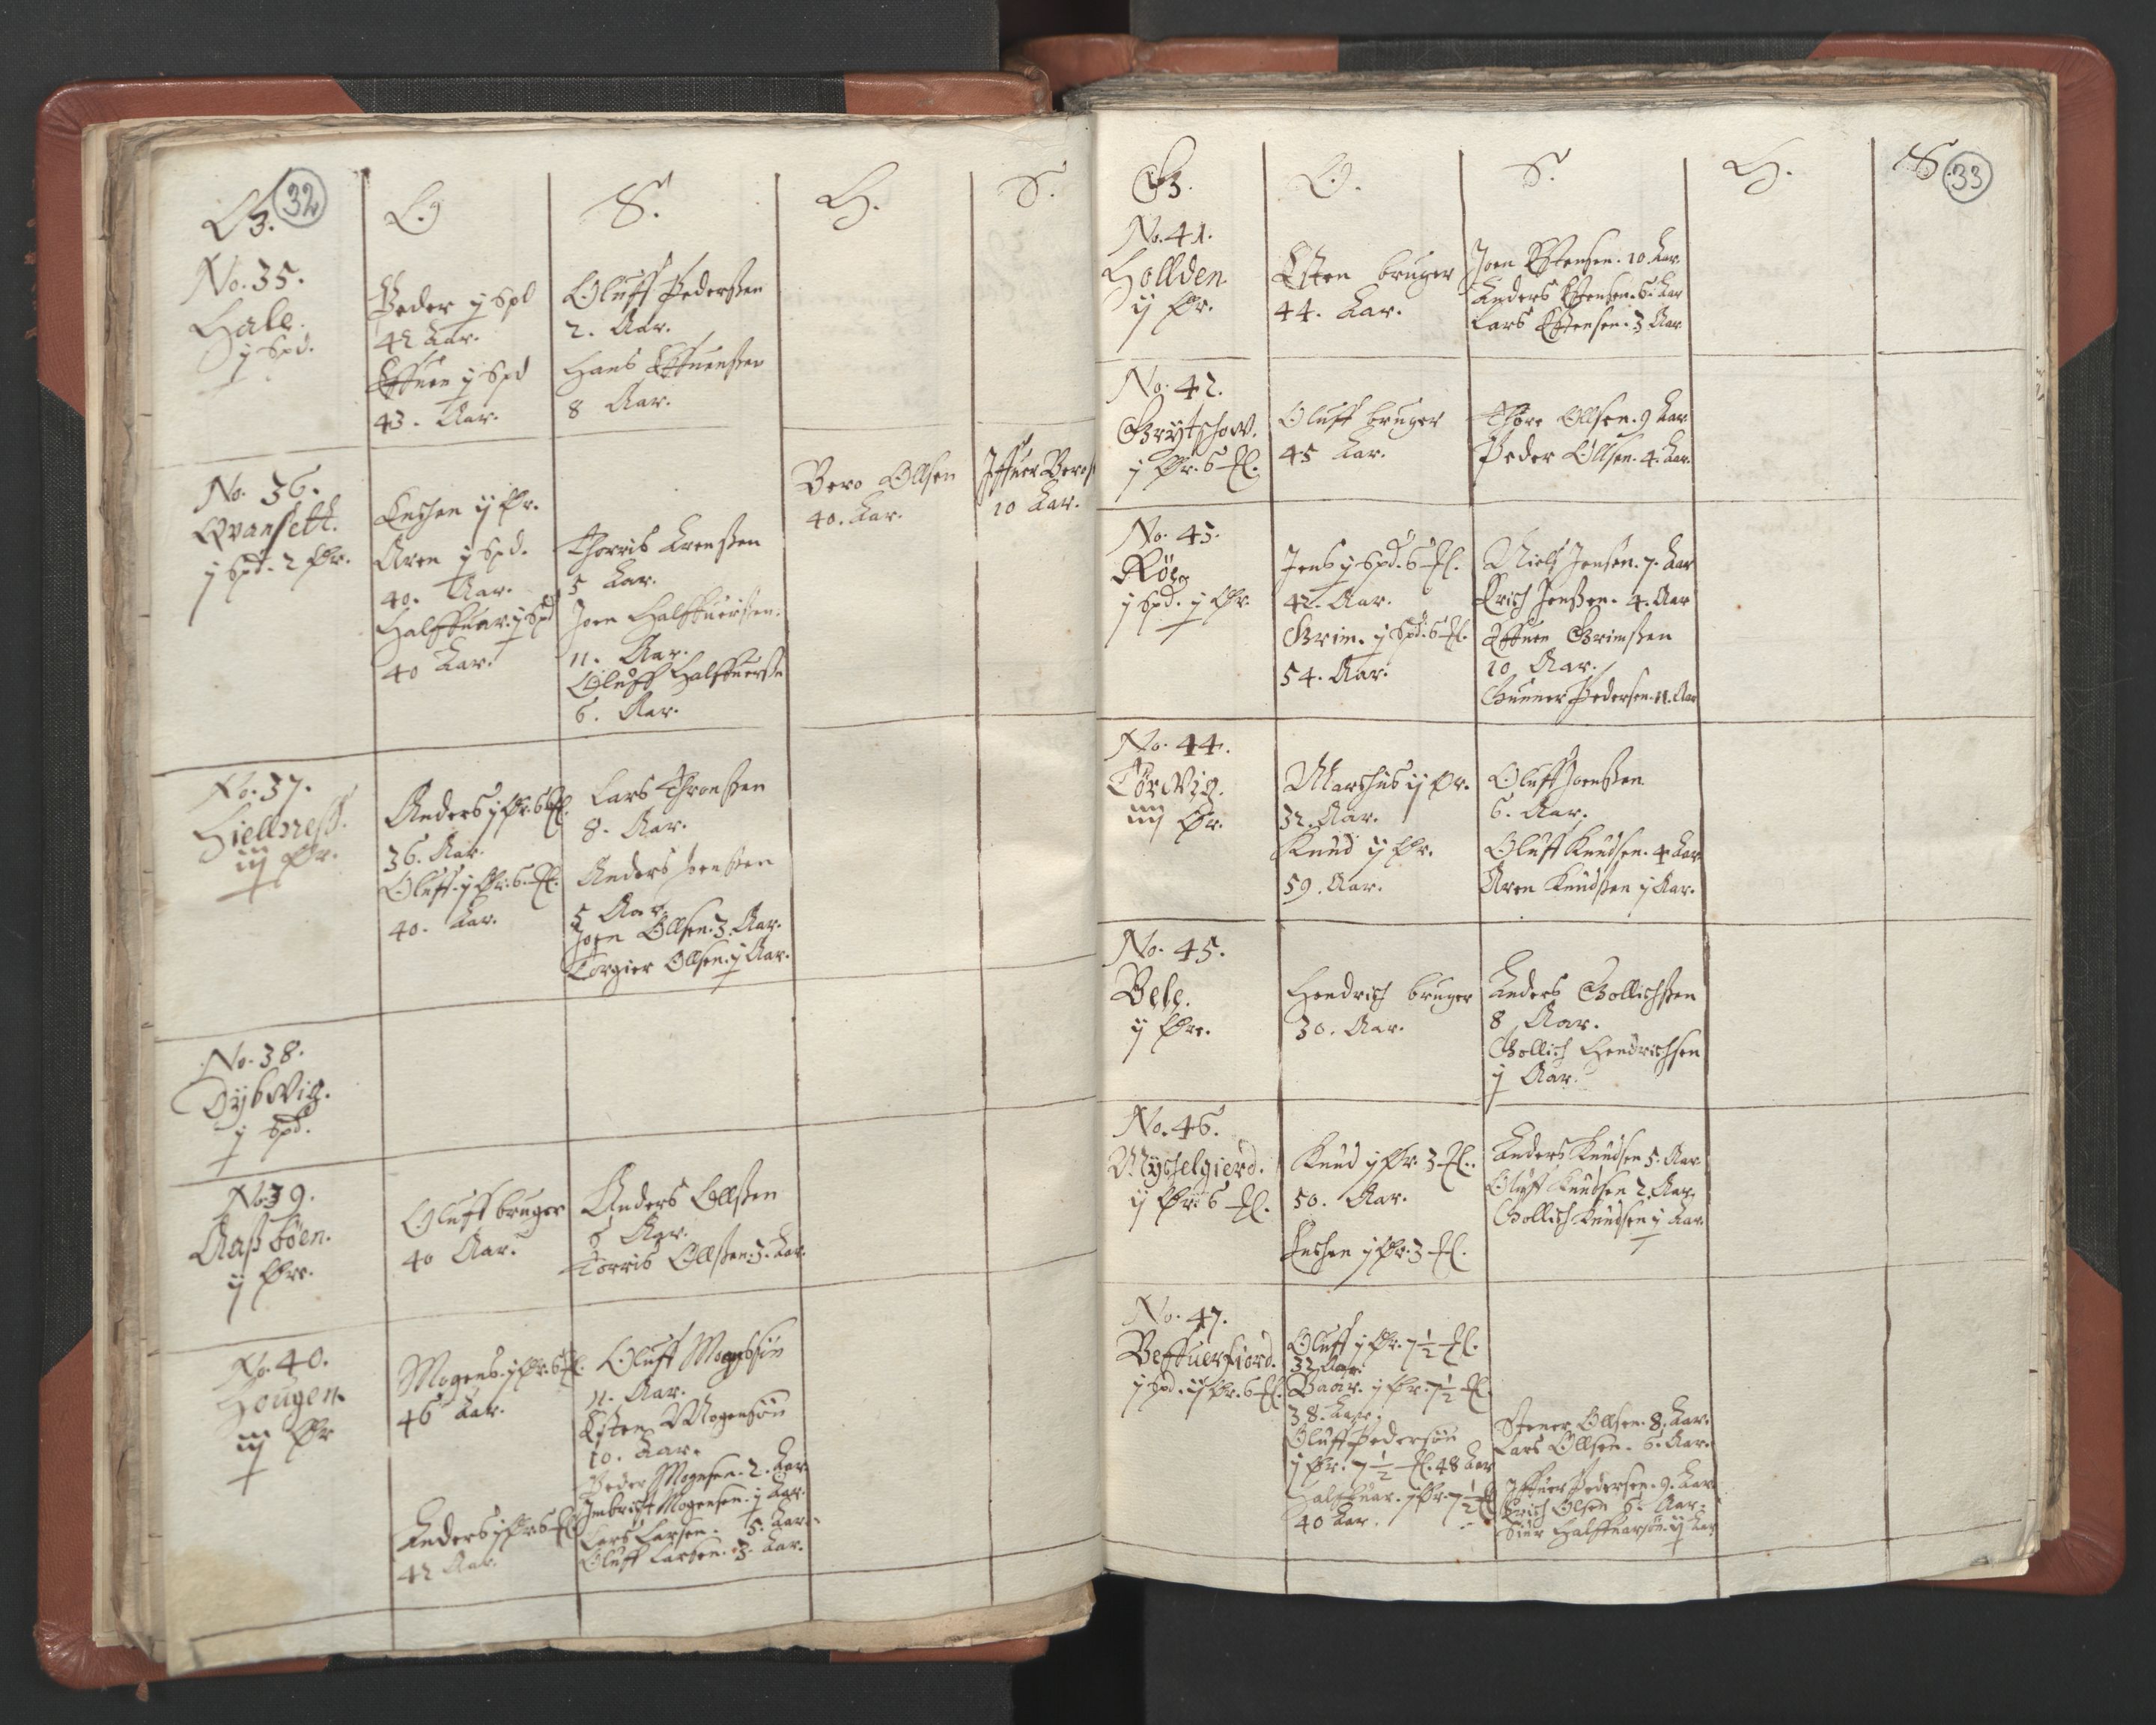 32
G. O. S. H. S.
No. 35.
Hale.
j Spd.
Peder j Spd
42 Aar.
Effuen j Spd
43. Aar.
Oluff Pederssen
2. Aar.
Hans Effuenssen
8 Aar.
No. 36.
Qvansett.
j Spd. 2 Ør.
Enchen ij Ør.
Aren j Spd.
40. Aar.
Halffuar. j Spd
40 Aar.
Thorris Arenssen
5 Aar.
Joen Halffuerssen.
11. Aar.
Oluff Halffuersse
6. Aar.
Bero Ollsen
40. Aar.
Iffuer Beros
10 Aar.
No. 37.
Hiellness.
iij Ør.
Anders j Ør. 6
36. Aar.
Oluff. j Ør. 6.
40. Aar.
Lars Thronssen
8. Aar.
Anders Joenssen
5 Aar
Joen Ollsen. 3. Aar.
Torgier Ollsen. j Aar.
No. 38.
Dybwig.
j Spd.
No. 39.
Aassbøen.
ij Ør.
Oluff bruger
40 Aar.
Anders Ollssen
8 Aar.
Torris Ollssen. 3. Aar.
No. 40.
Hougen.
iij Ør
Mogens. j Ør. 6
46 Aar.
Anders j Ør 6
42 Aar.
Oluff Mogensøn
11. Aar.
Esten Mogensøn
10. Aar.
Peder Mogensen. 2. Aar.
Imbricht Mogensen. j Aar.
Lars Larsen. 5. Aar.
Oluff Larsen. 3. Aar.
33
G. O. S. H. S.
No. 41.
Hollden
ij Ør.
Esten bruger
44. Aar.
Joen Estensen. 10 Aar.
Anders Estensen. 6. Aar
Lars Estensen. 3 Aar
No. 42.
Grytschow.
j Ør. 6
Oluff bruger
45 Aar.
Thore Ollsen. 9 Aar
Peder Ollsen. 4. Aar.
No. 43.
Røe
j Spd. j Ør.
Jens j Spd. 6
42. Aar.
Grim. j Spd. 6
54. Aar.
Niels Jensen. 7. Aar
Erich Jenssen. 4. Aar
Effuen Grimssen
10 Aar.
Gunner Pedersen. 11. Aar
No. 44.
Tørwig.
iiij Ør.
Marchus ij Ør.
32. Aar.
Knud ij Ør.
59. Aar.
Oluff Joenssen
6. Aar.
Oluff Knudsen. 4 Aar
Aren Knudssen j Aar.
No. 45.
Bele.
ij Ør.
Hendrich bruger
30. Aar.
Anders Gollichssen
8 Aar.
Gollich Hendrichsen
j Aar.
No. 46.
Mychelgierd.
ij Ør. 6
Knud j Ør. 3
50. Aar.
Enchen j Ør. 3
Anders Knudsen 5. Aar
Oluff Knudsen 2. Aar.
Gollich Knudsen j Aar.
No. 47.
Beffuerfiord.
j Spd. ij Ør. 6
Oluff j Ør. 7 1/2
32 Aar.
Baar. j Ør. 7 1/2
38. Aar.
Oluff Pedersøn
j Ør. 7 1/2 48 Aar
Halffuar. j Ør. 7 1/2
40 Aar.
Stener Ollsen. 8. Aar.
Lars Ollsen. 6. Aar.
Iffuer Pedersen. 9. Aar
Erich Olsen 6. Aar.
Siur Halffuarsøn. ij Aar